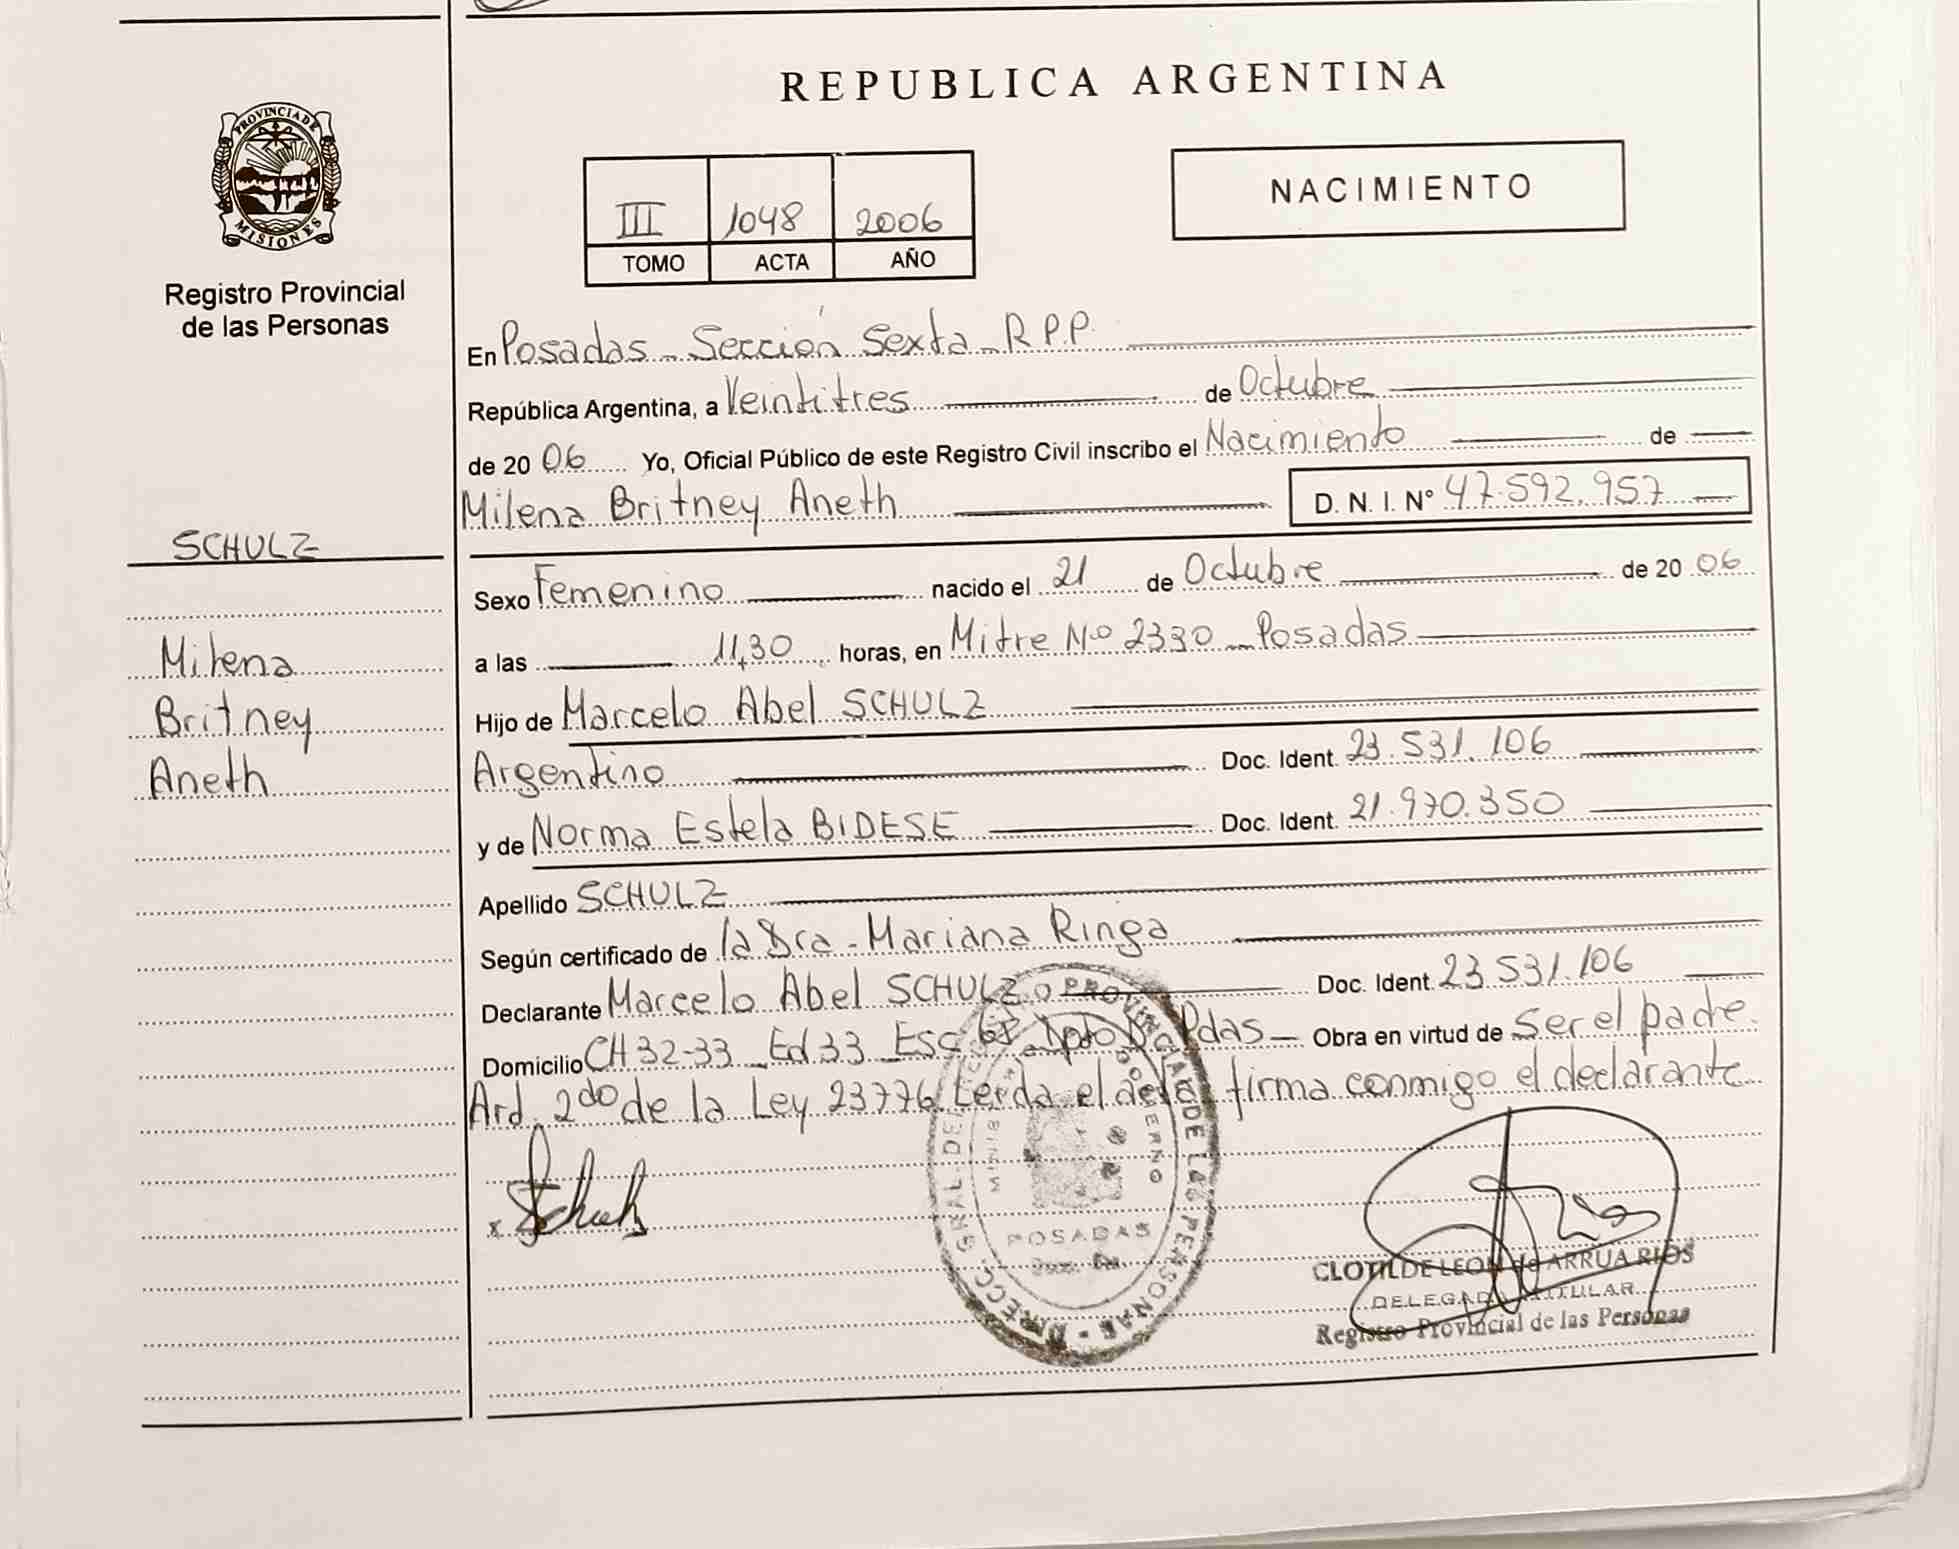 REPUBLICA ARGENTINA
PROVINCIA DE
MISIONES
Registro Provincial
de las Personas
III 1048 2006
TOMO ACTA AÑO
NACIMIENTO
En Posadas - Sección Sexta - R P.P.
República Argentina, a Veintitres de Octubre
de 20 06 Yo, Oficial Público de este Registro Civil inscribo el Nacimiento de
Milena Britney Aneth D. N. I. Nº 47.592.957
SCHULZ
Milena
Britney
Aneth
Sexo Femenino nacido el 21 de Octubre de 20 06
a las 11,30 horas, en Mitre Nº 2330 - Posadas
Hijo de Marcelo Abel SCHULZ
Argentino Doc. Ident. 23.531.106
y de Norma Estela BIDESE Doc. Ident. 21.970.350
Apellido SCHULZ
Según certificado de la Dra - Mariana Ringa
Declarante Marcelo Abel SCHULZ Doc. Ident. 23.531.106
Domicilio CH 32-33 Ed 33 Esc Dpto Pdas Obra en virtud de Ser el padre
Ard. 2do de la Ley 23776 Leída el acta firma conmigo el declarante
x Schulz
DIRECC. GRAL. DEL REGISTRO PROVINCIAL DE LAS PERSONAS
GOBIERNO
POSADAS
CLOTILDE LEON de ARRUA RIOS
DELEGADA TITULAR
Registro Provincial de las Personas